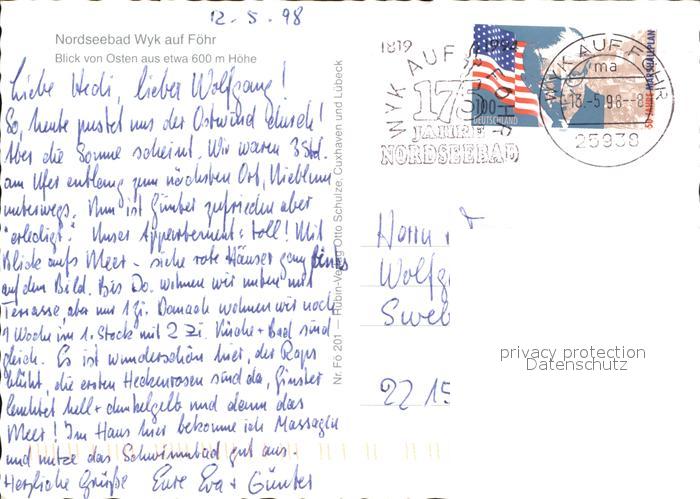 12.5.98
Nordseebad Wyk auf Föhr
Blick von Osten aus etwa 600 m Höhe
Liebe Hedi, lieber Wolfgang!
So, heute pustet uns der Ostwind durch!
Aber die Sonne scheint. Wir waren 3 Std.
am Ufer entlang zum nächsten Ort, Nieblum
unterwegs. Nun ist Günter zufrieden aber
"erledigt". Unser Appartement: toll! Mit
Blick aufs Meer - siehe rote Häuser ganz
auf dem Bild. Bis Do. wohnen wir unten mit
Terrasse, aber nur 1 Zi. Danach wohnen wir noch
1 Woche im 1. Stock mit 2 Zi. Küche + Bad sind
gleich. Es ist wunderschön hier, der Raps
blüht, die ersten Heckenrosen sind da, Ginster
leuchtet hell + dunkelgelb und dann das
Meer! Im Haus hier bekomme ich Massagen
und nutze das Schwimmbad gut aus.
Herzliche Grüße Eure Eva + Günter
Nr. Fö 201 — Rubin-Verlag Otto Schulze, Cuxhaven und Lübeck
1819 1994
WYK AUF FÖHR
175
JAHRE
NORDSEEBAD
DEUTSCHLAND
100
50 JAHRE MARSHALLPLAN
WYK AUF FÖHR
ma
13.-5.98--8
25938
Herrn
Wolfg
Sweb
22 15
privacy protection
Datenschutz